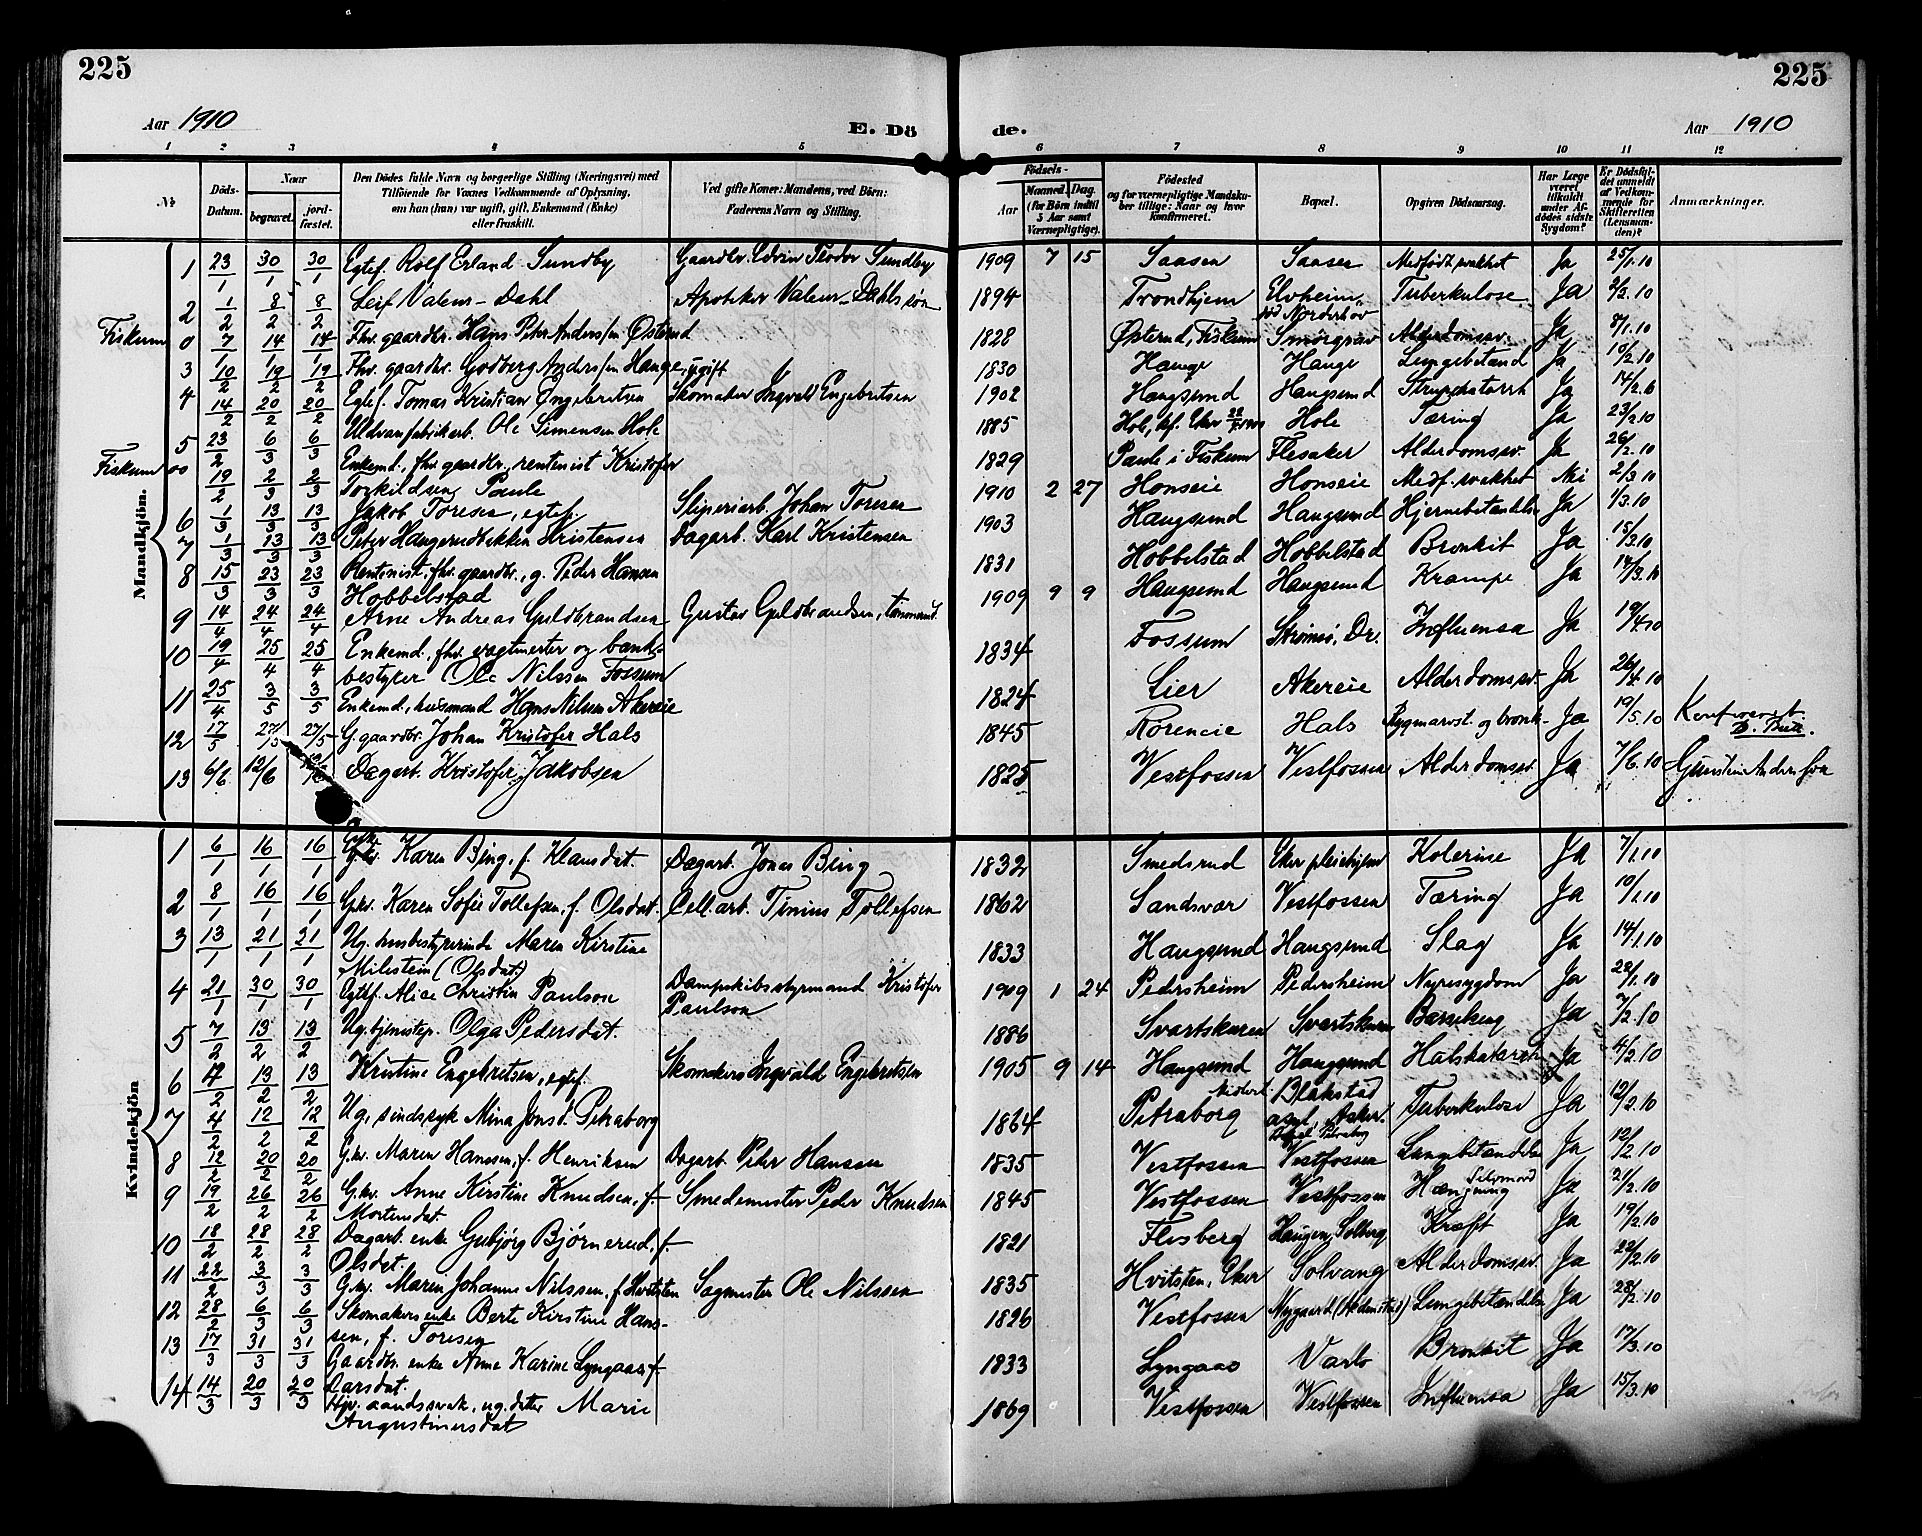 225
225
Aar 1910
E. Dö
de.
Aar 1910
1 2 3 4 5 6 7 8 9 10 11 12
№
Döds-Datum.
Naar
begravet.
jordfæstet.
Den Dödes fulde Navn og borgerlige Stilling (Næringsvei) med
Tilföiende for Voxnes Vedkommende af Oplysning,
om han (hun) var ugift, gift, Enkemand (Enke)
eller fraskilt.
Ved gifte Koner: Mandens, ved Börn:
Faderens Navn og Stilling.
Födsels-
Aar
Maaned. Dag.
(for Börn indtil 5 Aar samt Værnepligtige).
Födested
og for værnepligtige Mandskaber tillige: Naar og hvor konfirmeret.
Bopæl.
Opgiven Dödsaarsag.
Har Læge været tilkaldt under Afdödes sidste Sygdom?
Er Dödsfaldet anmeldt af Vedkommende for Skifteretten (Lensmanden)?
Anmærkninger.
Mandkjön.
1 23/1 30/1 30/1 Egtef. Rolf Erland Sundby Gaardbr. Edvin Teodor Sundby 1909 7 15 Saasen Saasen Medfödt svakhet Ja 25/1.10
2 1/2 8/2 8/2 Leif Valeur-Dahl Apoteker Valeur-Dahls søn 1894 Trondhjem Elvheim, Norderhov Tuberkulose Ja 2/2.10
Fiskum 0 7/2 14/2 14/2 Fhv. gaardbr. Hans Peter Anderssen Østerud 1828 Østerud, Fiskum Smørgrav Alderdomssv. Ja 8/1.10
3 10/2 19/2 19/2 Fhv. gaardbr. Godberg Anderssen Hauge, ugift 1830 Hauge Hauge Lungebetænd Ja 10/2.10
4 14/2 20/2 20/2 Egtef. Tomas Kristian Engebretsen Skomaker Ingvald Engebretsen 1902 Haugsund Haugsund Strupekatarrh Ja 14/2.10
5 23/2 6/3 6/3 Uldvarefabrikarb. Ole Simensen Hole 1885 Hole, kf. Eker Hole Tæring Ja 23/2.10
Fiskum 00 19/2 2/3 2/3 Enkemd., fhv. gaardbr., rentenist Kristofer
Torkildsen Paule 1829 Paule i Fiskum Flesaker Alderdomssv. Ja 26/2.10
6 1/3 13/3 13/3 Jakob Toresen, egtef. Sliperiarb. Johan Toresen 1910 2 27 Honseie Honseie Medf. svakhet Nei 2/3 10
7 1/3 13/3 13/3 Peter Haugerudbekken Kristensen Dagarb. Karl Kristensen 1903 Haugsund Haugsund Hjernebetændelse Ja 1/3.10
8 15/3 23/3 23/3 Rentenist, fhv. gaardbr., g. Peder Hansen
Hobbelstad 1831 Hobbelstad Hobbelstad Bronkit Ja 15/3.10
9 14/4 24/4 24/4 Arne Andreas Guldbrandsen Gustav Guldbrandsen, tømmerm. 1909 9 9 Haugsund Haugsund Krampe Ja 14/3.10
10 19/4 25/4 25/4 Enkemd., fhv. vagtmester og bank-
bestyrer Ole Nilssen Fossum 1834 Fossum Strømsö, Dr. Influensa Ja 19/4.10
11 25/4 3/5 3/5 Enkemd., husmand Hans Nilsen Akereie 1824 Lier Akereie Alderdomssv. Ja 26/4.10
12 17/5 27/5 27/5 G. gaardbr. Johan Kristofer Hals 1845 Roreneie Hals Rygmarvst. og bronk. Ja 19/5.10
13 6/6 12/6 12/6 Dagarb. Kristofer Jakobsen 1825 Vestfossen Vestfossen Alderdomssv. Ja 7/6.10
Kvindekjön
1 6/1 16/1 16/1 G.kv. Karen Bjing, f. Klausdat. Dagarb. Jonas Bling 1832 Smedsrud Eker pleiehjem Kolerine Ja 7/1.10
2 8/1 16/1 16/1 G.kv. Karen Sofie Tollefsen, f. Olsdat. Cell.arb. Tinius Tollefsen 1862 Sandsvær Vestfossen Tæring Ja 10/1.10
3 13/1 21/1 21/1 Ug. husbestyrerinde Maren Kirstine
Milestein (Olsdat.) 1833 Haugsund Haugsund Slag Ja 14/1.10
4 21/1 30/1 30/1 Egtef. Alice Christin Paulson Dampskibsstyrmand Kristofer
Paulson 1909 1 24 Pedersheim Pedersheim Nyresygdom Ja 22/1.10
5 7/2 13/2 13/2 Ug. tjenestep. Olga Pedersdat. 1886 Svartskuren Svartskuren Barseleng Ja 7/2.10
6 4/2 13/2 13/2 Kristine Engebretsen, egtef. Skomakers Ingvald Engebretsen 1905 9 14 Haugsund Haugsund Halskatarrh Ja 4/2.10
7 4/2 12/2 12/2 Ug., sindssyk Mina Jonsd. Petraborg 1864 Petraborg Blakstad
asyl, Asker. Tuberkulose Ja 12/2.10
8 12/2 20/2 20/2 G.kv. Maren Hanssen, f. Henriksen Dagarb. Peder Hanssen 1835 Vestfossen Vestfossen Lungebetændelse Ja 12/2.10
9 19/2 26/2 26/2 G.kv. Anne Kirstine Knudsen, f.
Mortensdat. Smedemester Peder Knudsen 1845 Vestfossen Vestfossen Hængning Selvmord Ja 21/2.10
10 18/2 28/2 28/2 Dagarb. enke Gubjörg Bjørnerud, f.
Olsdat. 1821 Flesberg Haugen, Solberg Kræft Ja 19/2.10
11 22/2 3/3 3/3 G.kv. Maren Johanne Nilssen, f. Hvitsten Sagmester Ole Nilssen 1835 Hvitsten, Eker Solvang Alderdomssv. Ja 22/2.10
12 28/2 6/3 6/3 Skomakers enke Berte Kirstine Hans-
sen, f. Toresen 1826 Vestfossen Nygaard (Hedenstad) Lungebetændelse Ja 28/2.10
13 17/3 31/3 31/3 Gaardbr. enke Anne Karine Lyngaas, f.
Larsdat. 1833 Lyngaas Varlo Bronkit Ja 17/3.10
14 14/3 20/3 20/3 Hjv. aandssvak, ug. datter Marie
Augustinusdat 1869 Vestfossen Vestfossen Influensa Ja 15/3.10